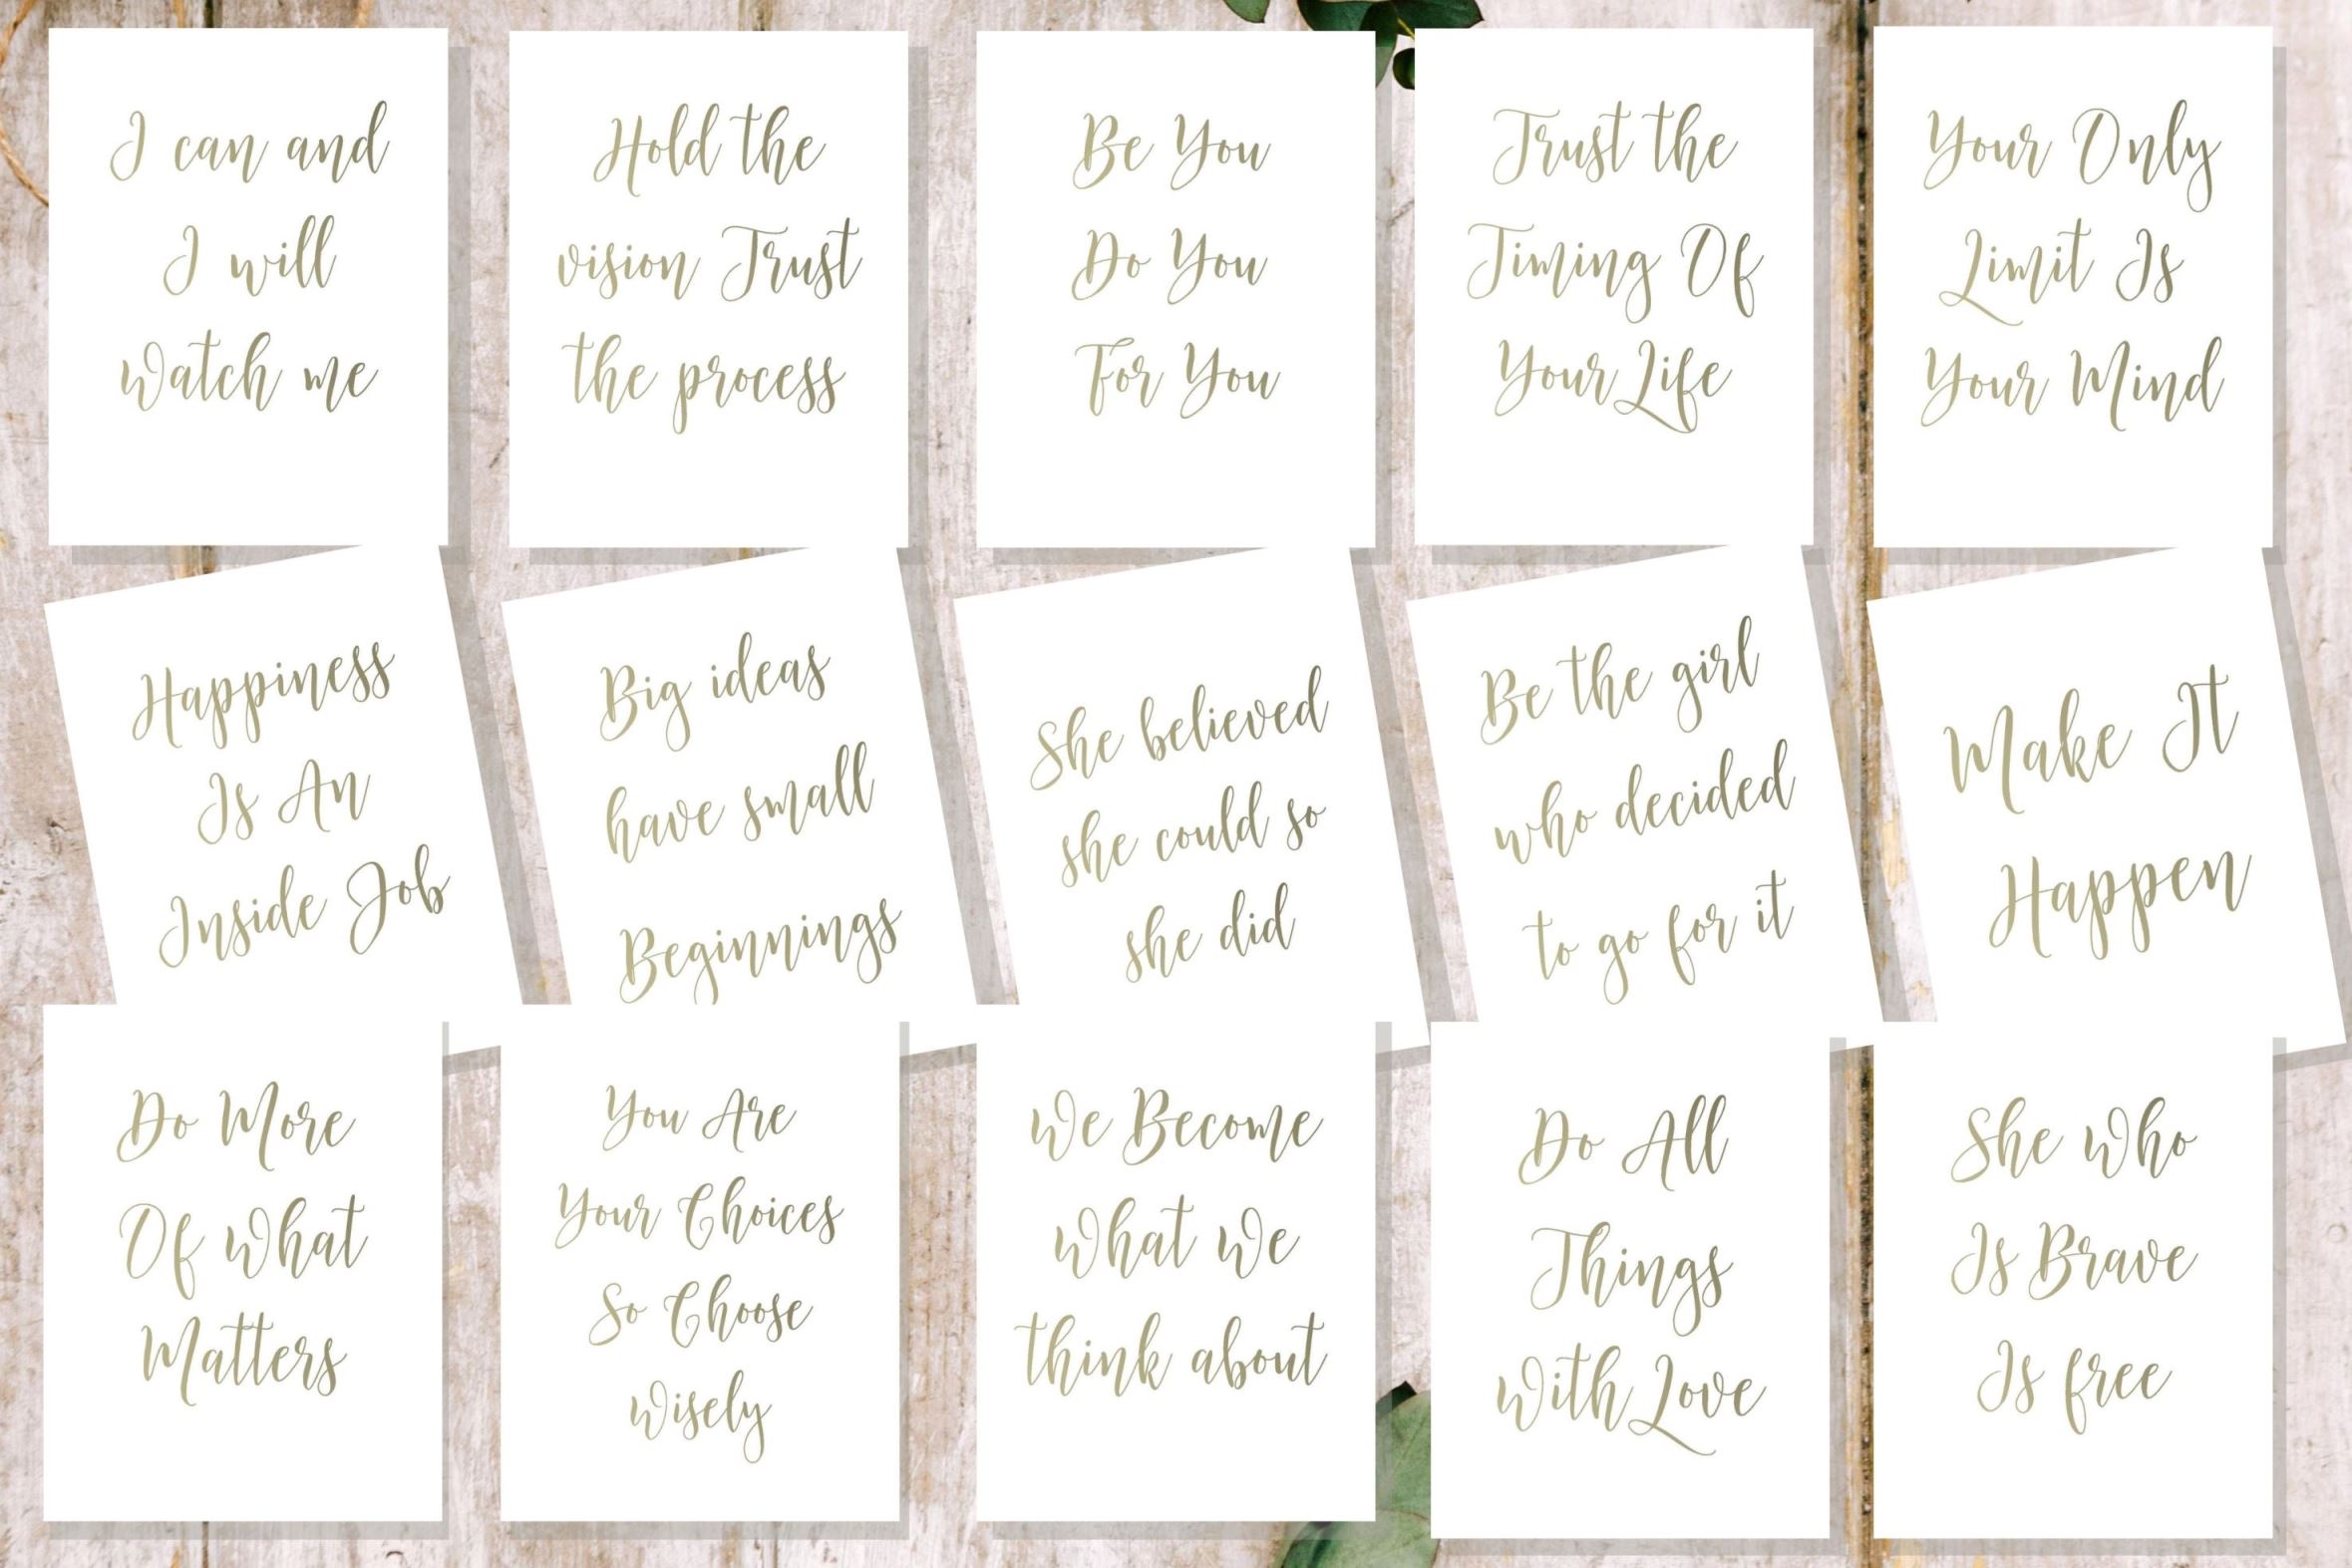 I can and
I will
Watch me
Hold the
vision Trust
the process
Be You
Do You
For You
Trust the
Timing Of
Your Life
Your Only
Limit Is
Your Mind
Happiness
Is An
Inside Job
Big ideas
have small
Beginnings
She believed
she could so
she did
Be the girl
who decided
to go for it
Make It
Happen
Do More
Of What
Matters
You Are
Your Choices
So Choose
Wisely
We Become
What We
think about
Do All
Things
With Love
She Who
Is Brave
Is free